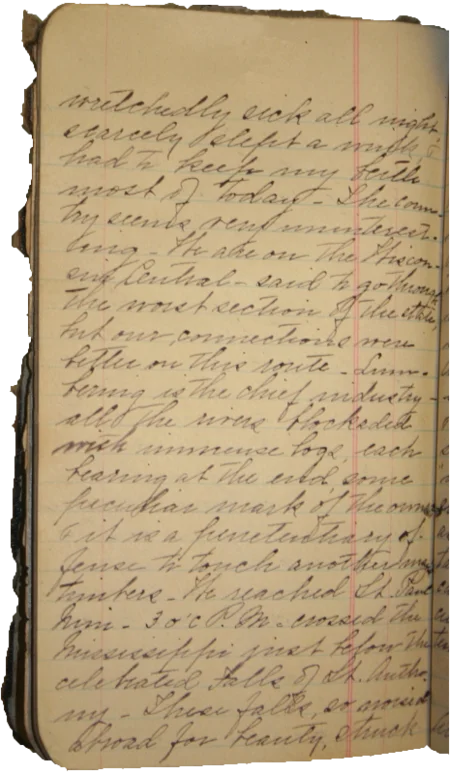 wretchedly sick all night
scarcely slept a wink &
had to keep my berth
most of today - The coun-
try seems very uninterest-
ing - We are on the Wiscon-
sin Central - said to go through
the worst section of the state,
but our connections were
better on this route - Lum-
bering is the chief industry -
all the rivers blockaded
with immense logs, each
bearing at the end some
peculiar mark of the owner
& it is a penetentiary of-
fense to touch another
timbers - We reached St. Paul
Minn - 3 o'c P.M. - crossed the
Mississippi just below the
celebrated Falls of St. Antho-
ny - These falls, so noised
abroad for beauty, struck